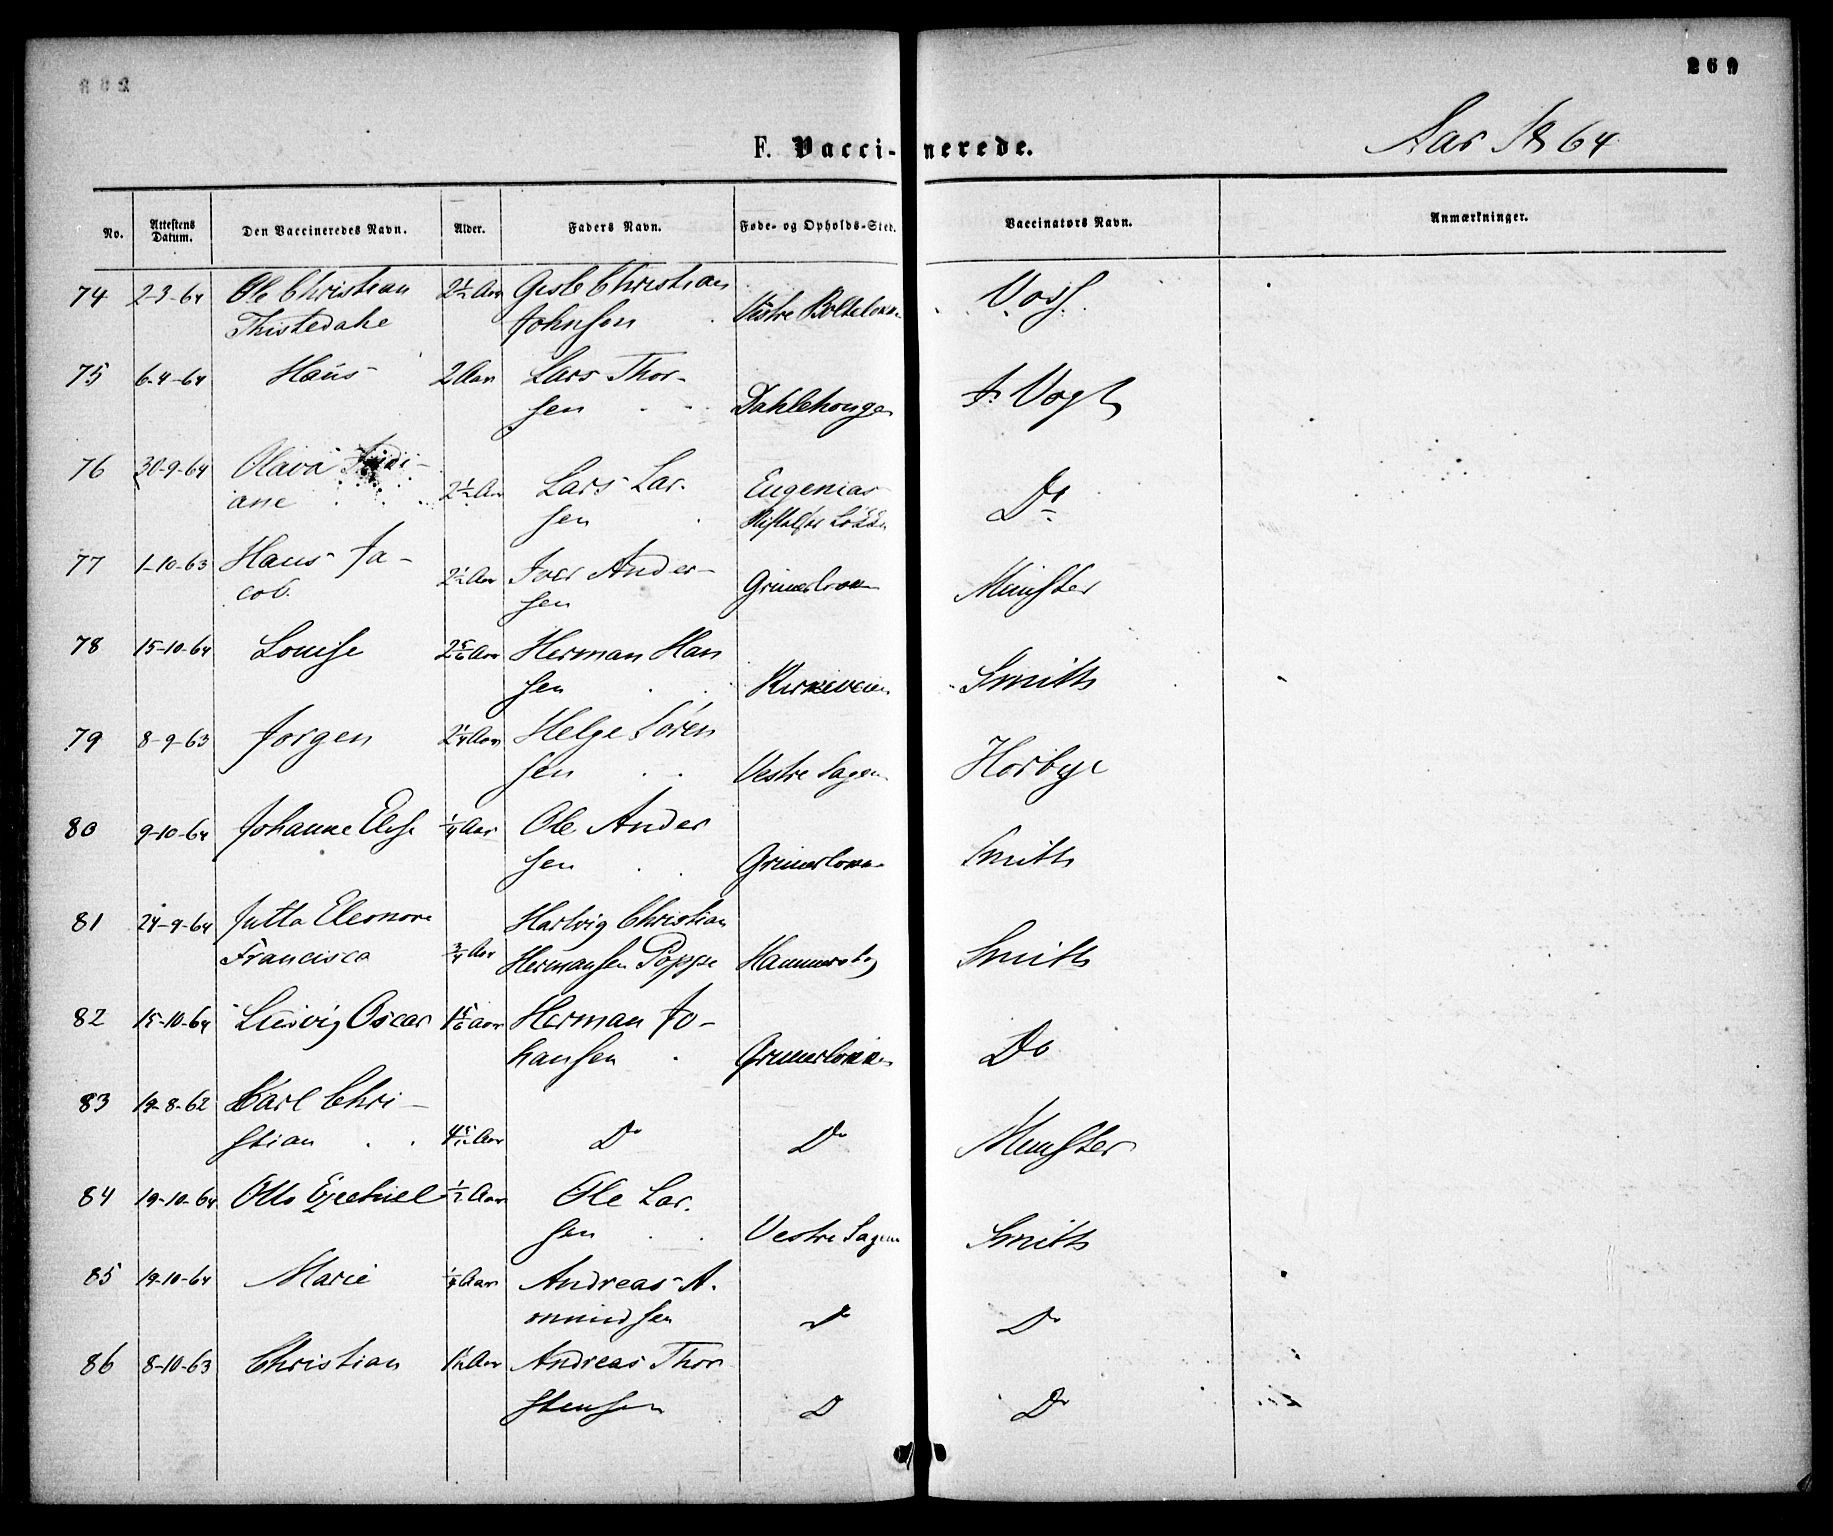 269
Aar 1864
F. Vaccinerede.
No. Attestens Datum. Den Vaccineredes Navn. Alder. Faders Navn. Føde- og Opholds-Sted. Vaccinators Navn. Anmærkninger.
74 2-3-64 Ole Christian 2½ Aar Gisle Christian
Thistedahe Johnsen Vestre
75 6-4-64 Hans 2 Aar Lars Thor-
sen Dahlehougen J. Vogt
76 30-9-64 Olava 2½ Aar Lars Lar-
ane sen Eugenias Stiftelse Løkke Do
77 1-10-63 Hans Ja- 2½ Aar Iver Ander-
cob. sen Grünerløkken Münster
78 15-10-64 Louise 2 5/6 Aar Herman Han
sen Kirkeveien Smith
79 8-9-63 Jørgen 2¼ Aar Helge Sören
sen Vestre Sagene Horbye
80 9-10-64 Johanne Elise ¼ Aar Ole Ander
sen Grünerløkken Smith
81 24-9-64 Jutta Eleonora Hartvig Christian
Francisca ¾ Aar Hermansen Poppe Hammersbg Smith
82 15-10-64 Ludvig Oscar 1 5/6 Aar Herman Jo-
hansen Grünerløkken Do
83 19-8-62 Karl Chri-
stian 4 5/12 Aar Do Do Münster
84 19-10-64 Otto Ezechiel ½ Aar Ole Lar-
sen Vestre Sagene Smith
85 19-10-64 Marie ¼ Aar Andreas A-
mundsen Do Do
86 8-10-63 Christian 1½ Aar Andreas Thor
stensen D Do